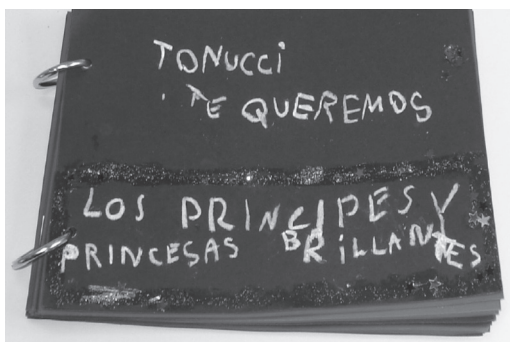 TONUCCi
TE QUEREMOS
LOS PRINCIPES Y
PRINCESAS BRiLLANTES